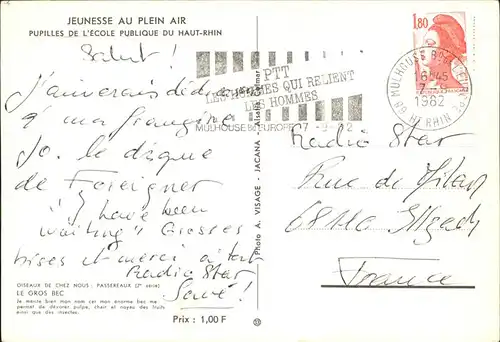 JEUNESSE AU PLEIN AIR
PUPILLES DE L'ÉCOLE PUBLIQUE DU HAUT-RHIN
Salut !
J'aimerais dédicacer
à ma frangine
Jo. le disque
de Foreigner
"I have been
waiting" Grosses
bises et merci à tout
Radio Star
Salut !
OISEAUX DE CHEZ NOUS : PASSEREAUX (2e série)
LE GROS BEC
Je mérite bien mon nom car mon énorme bec me
permet de dévorer pulpe, chair et noyau des fruits
ainsi que des insectes.
Prix : 1,00 F
Photo A. VISAGE - JACANA - Alsagraphic Colmar
PTT
LES HOMMES QUI RELIENT
LES HOMMES
MULHOUSE Bd EUROPE 17 - 9 - 82
1,80
68 MULHOUSE Bd DE L'EUROPE
16H45
17-9
1982
HT RHIN
Radio Star
Rue de Milan
68110 Illzach
France